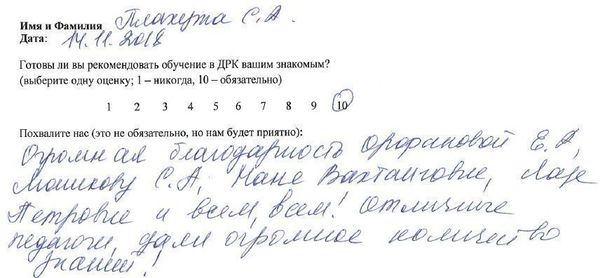 Имя и Фамилия Плахута С.А.
Дата: 14.11.2018
Готовы ли вы рекомендовать обучение в ДРК вашим знакомым?
(выберите одну оценку; 1 – никогда, 10 – обязательно)
1 2 3 4 5 6 7 8 9 10
Похвалите нас (это не обязательно, но нам будет приятно):
Огромная благодарность Орофановой Е.А,
Машкову С.А, Нане Вахтанговне, Ларе
Петровне и всем, всем! Отличные
педагоги, дали огромное количество
знаний!